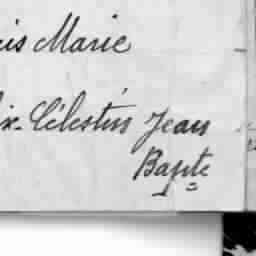 is Marie
ix-Célestin Jean
Bapte